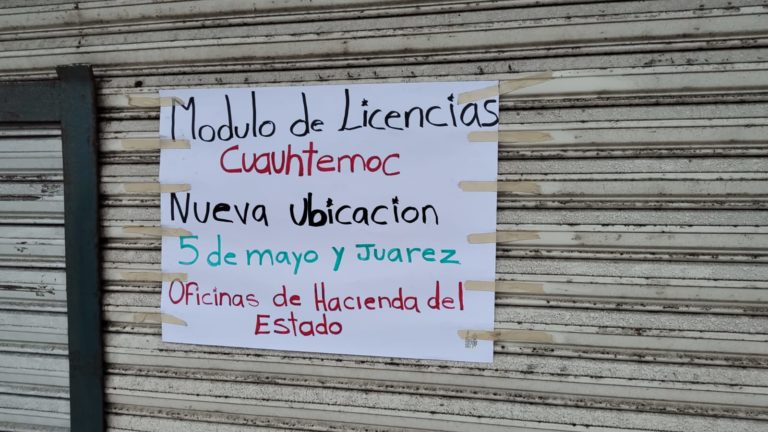 Modulo de Licencias
Cuauhtemoc
Nueva ubicacion
5 de mayo y Juarez
Oficinas de Hacienda del
Estado